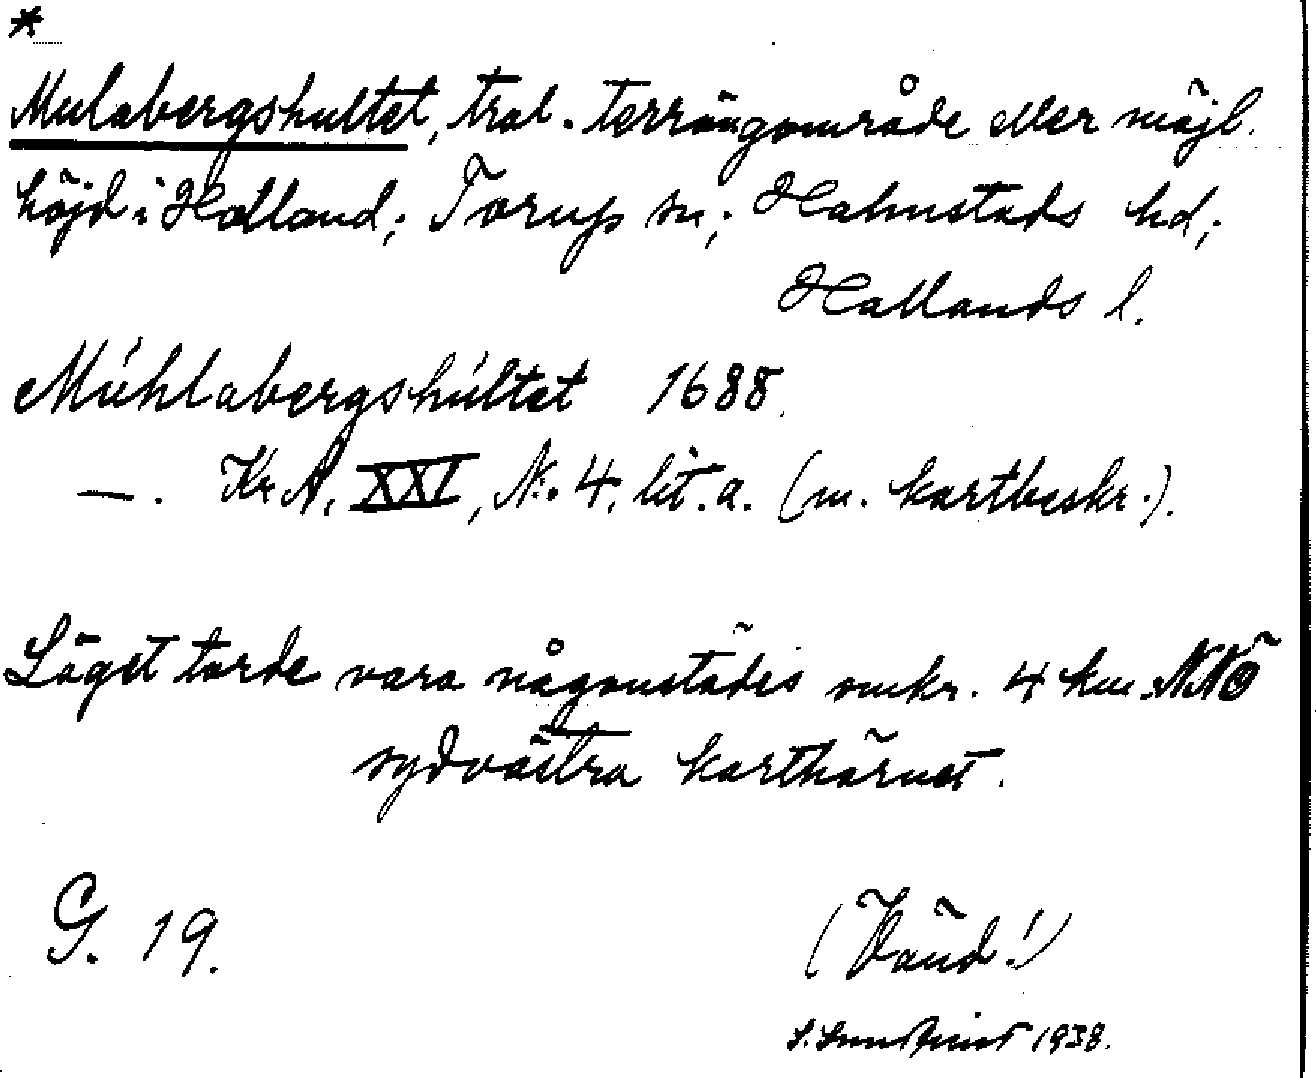 *
Mulabergshultet, trol. terrängområde eller möjl.
höjd i Halland; Torup sn; Halmstads hd;
Hallands l.
Múhlabergshúltet 1688.
—. Kr A, XXI, N:o 4, lit. a. (m. kartbeskr.).
Läget torde vara någonstädes omkr. 4 km NNÖ
sydvästra karthörnet.
G. 19.
(Vänd!)
1938.